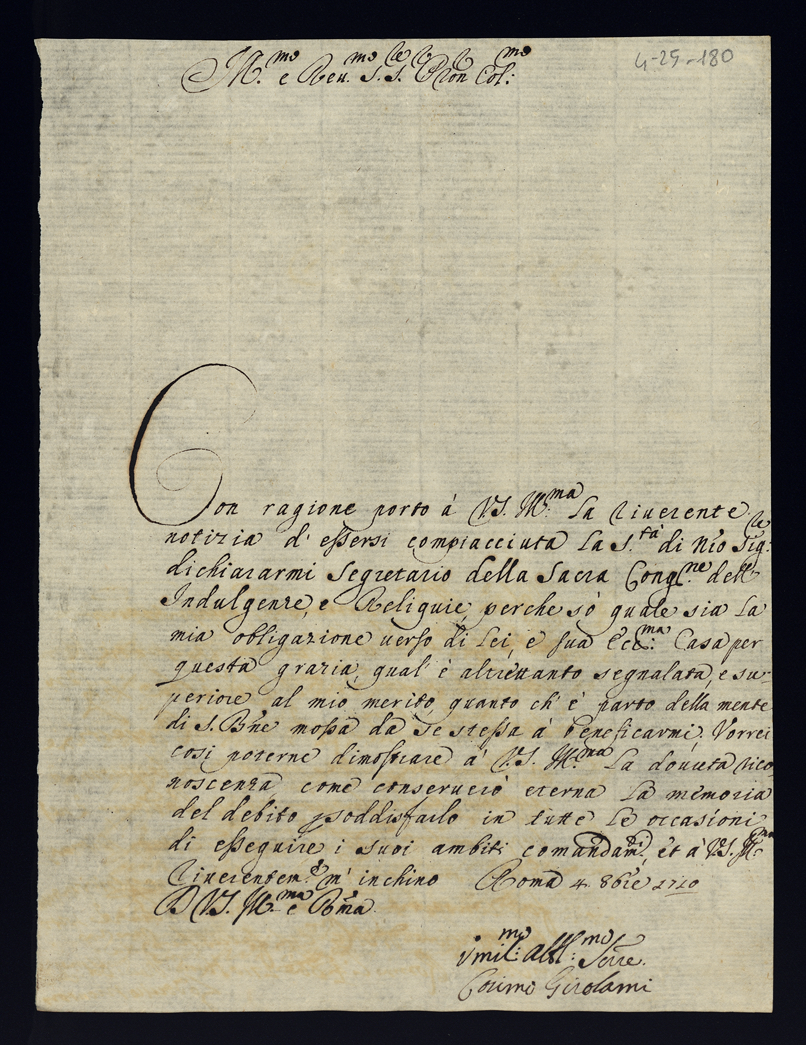 Ill.mo e Reu.mo S.re S.r P̃ron Col.mo
4-25-180
Con ragione porto à V.S. Ill.ma la riuerente
notizia d'essersi compiacciuta la S.tà di Nr̃o Sig.re
dichiararmi Segretario della Sacra Cong.ne dell'
Indulgenze, e Reliquie, perche sò quale sia la
mia obligazione uerso di Lei, e sua Ecc.ma Casa per
questa grazia, qual' è altrettanto segnalata, e su-
periore al mio merito, quanto ch' è parto della mente
di S. B.ne mossa da se stessa à beneficarmi. Vorrei
così poterne dimostrare à V.S. Ill.ma la douuta rico-
noscenza, come conseruerò eterna la memoria
del debito p soddisfarlo in tutte le occasioni
di esseguire i suoi ambiti comandam.ti, et à V.S. Ill.ma
riuerentem.e m' inchino Roma 4. 8bre 1710
D V.S. Ill.ma e R.ma
Vmil.mo Obbl.mo Serre.
Cosimo Girolami